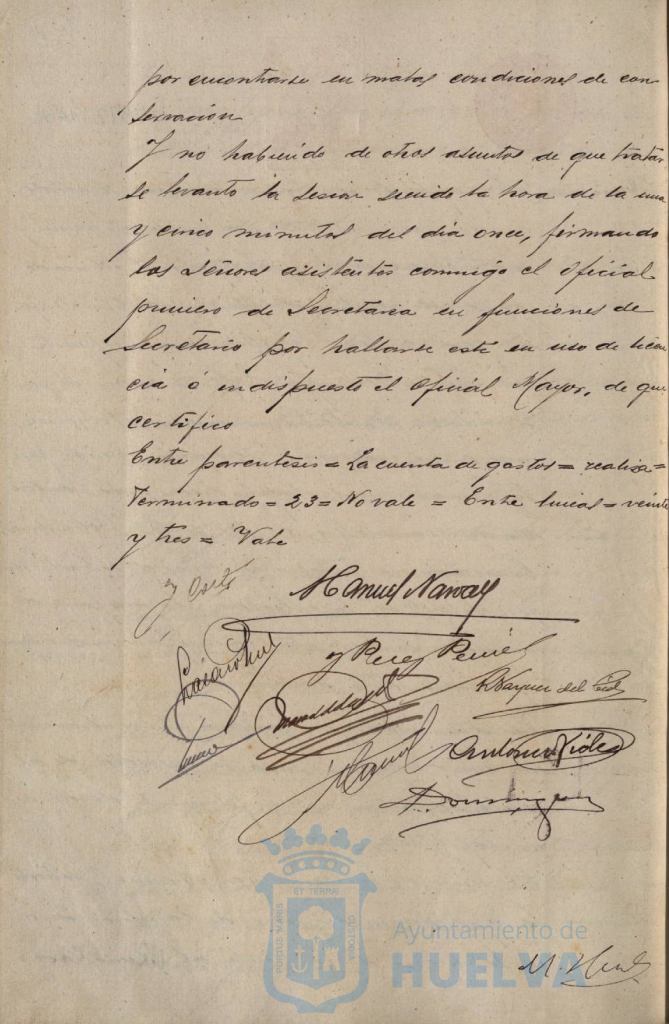 por encontrarse en malas condiciones de con
servación
Y no habiendo de otros asuntos de que tratar
se levanto la sesion siendo la hora de la una
y cinco minutos del dia once, firmando
los Señores asistentes conmigo el Oficial
primero de Secretaria en funciones de
Secretario por hallarse este en uso de licen
cia é indispuesto el Oficial Mayor, de que
certifico
Entre parentesis = La cuenta de gastos = realiza =
Terminado = 23 = No vale = Entre lineas = veinte
y tres = Vale
Manuel
y Perez
Vazquez del
Antonio
Dominguez
PORTUS MARIS
ET TERRAE
CUSTODIA
Ayuntamiento de
HUELVA
M.